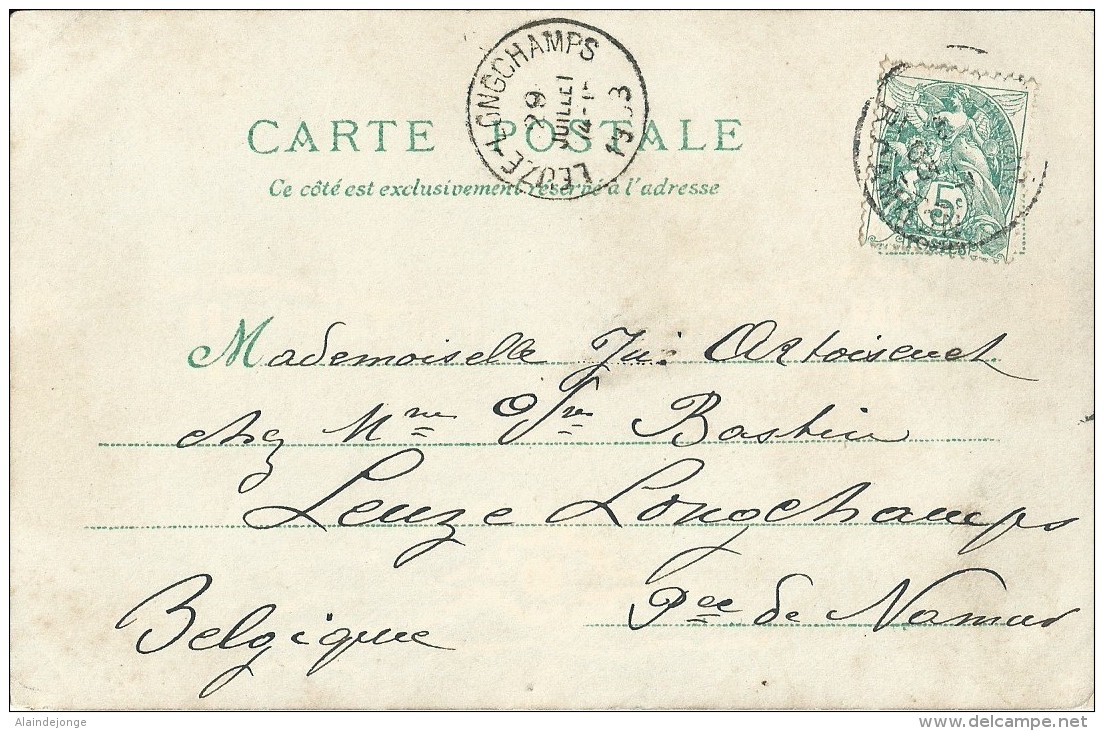 LEUZE-LONGCHAMPS
29
JUILLET
1903
CARTE POSTALE
Ce côté est exclusivement réservé à l'adresse
5c
POSTES
Mademoiselle Artoisenet
chez Mme Bastin
Leuze Longchamps
Pce de Namur
Belgique
Alaindejonge
www.delcampe.net